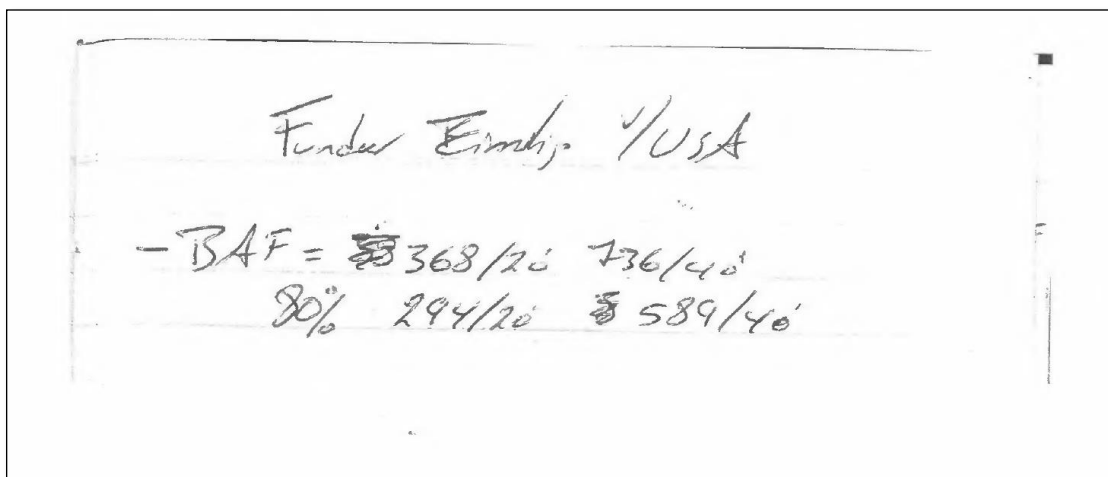 Fundur Eimskip v/USA
- BAF = 368/20' 736/40'
80% 294/20' 589/40'